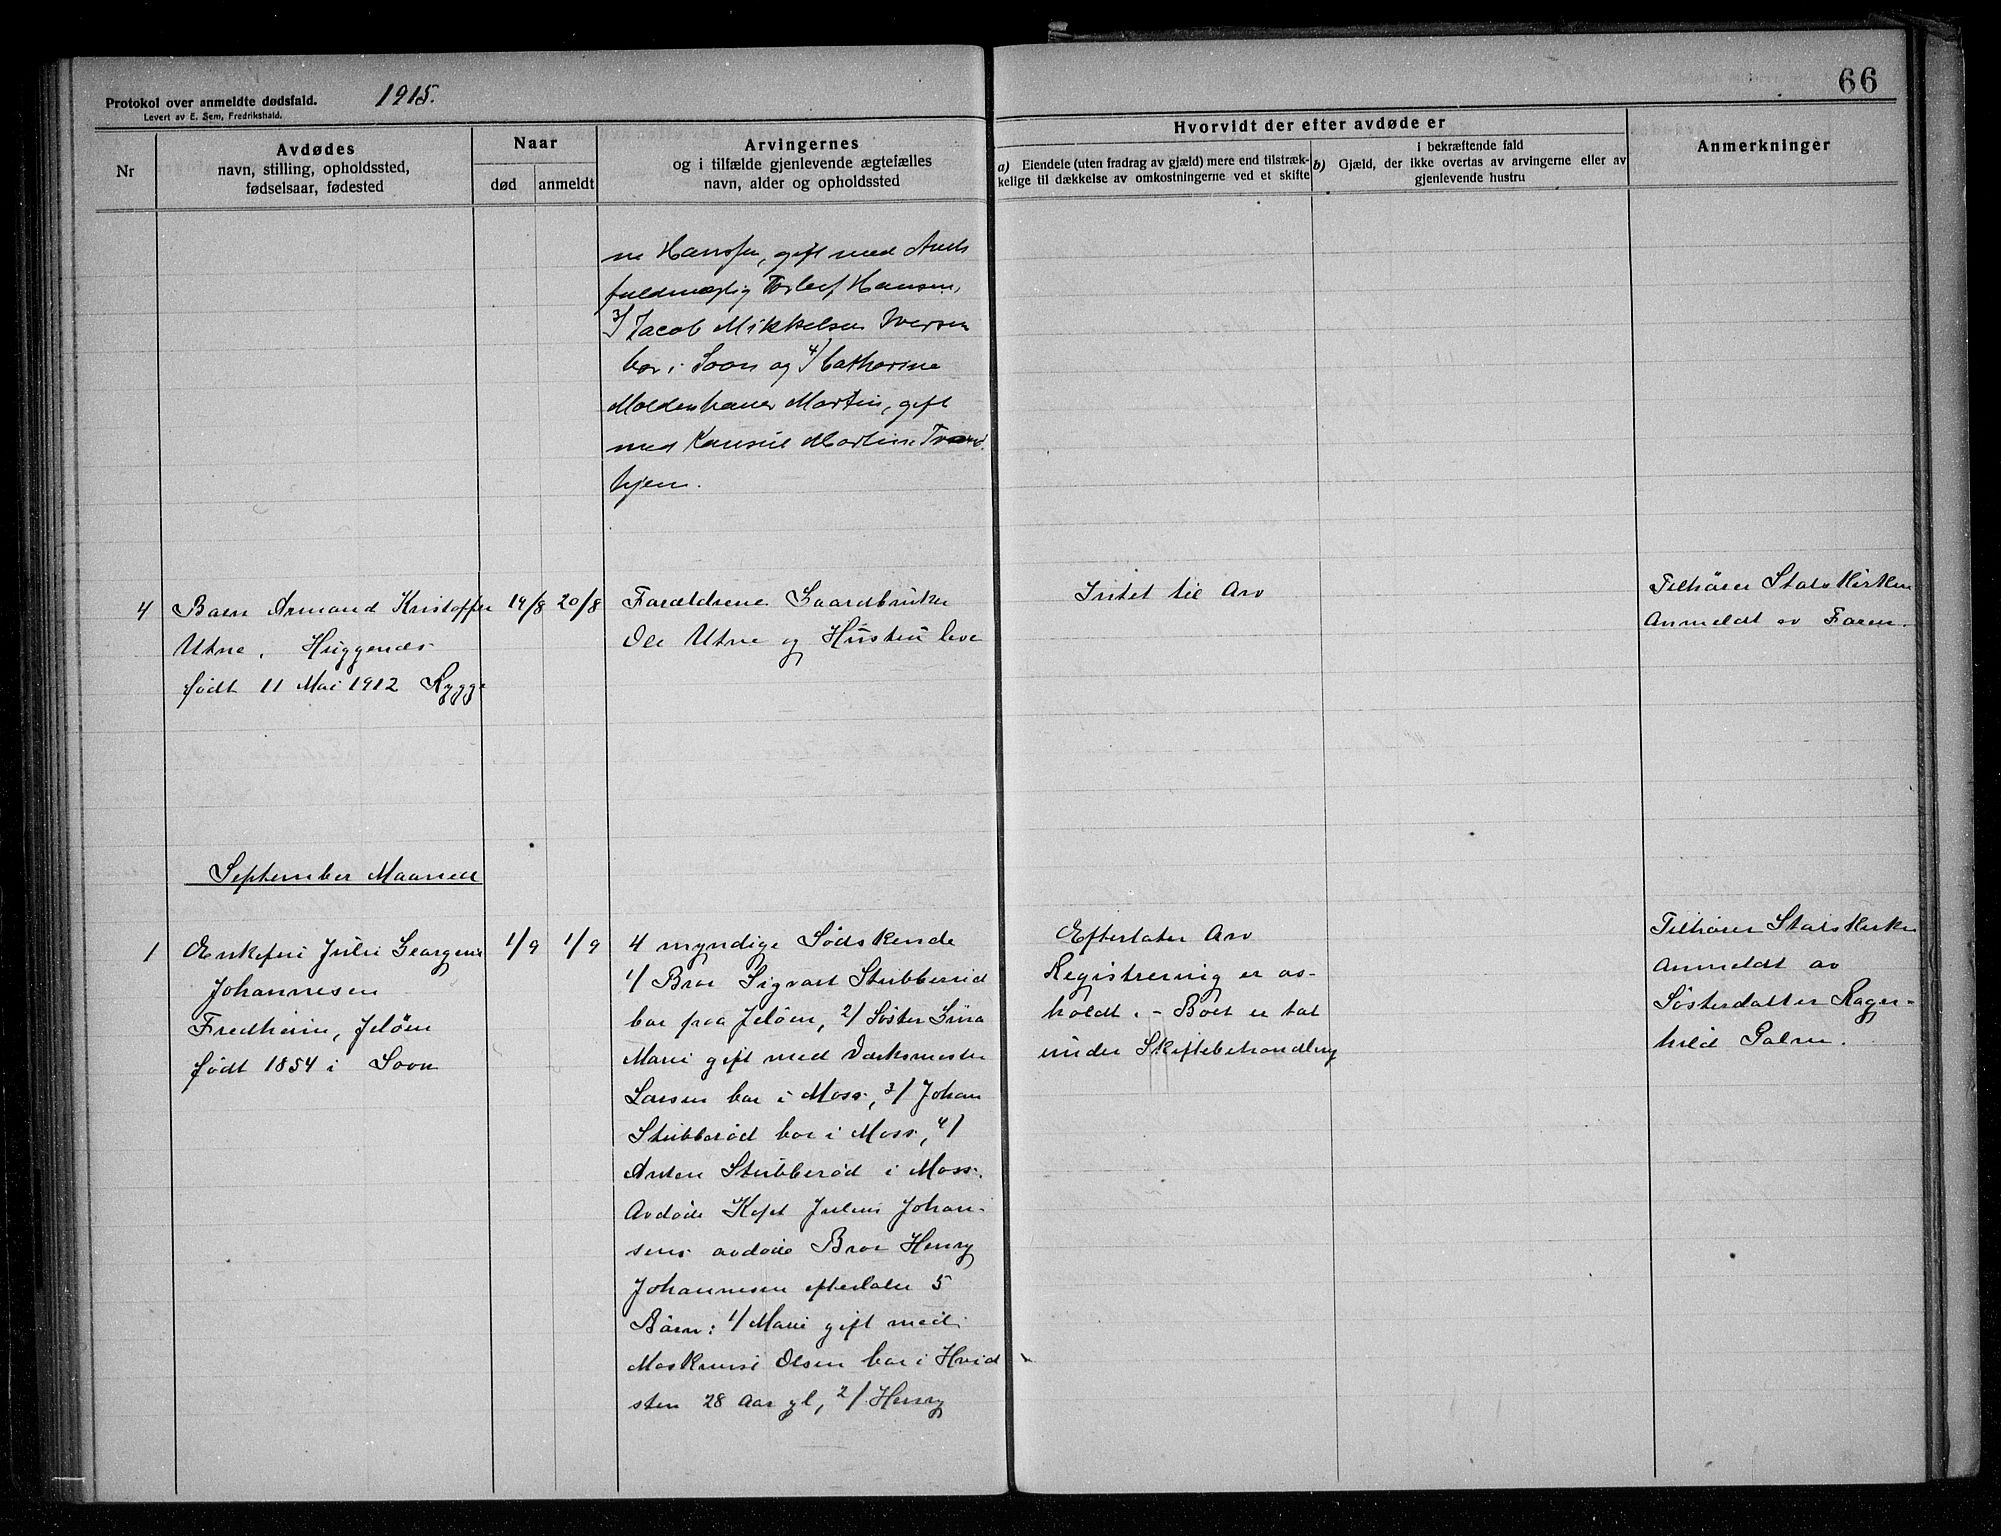 Protokol over anmeldte dødsfald. 1915.
Levert av E. Sem, Fredrikshald.
66
Nr
Avdødes
navn, stilling, opholdssted,
fødselsaar, fødested
Naar
død anmeldt
Arvingernes
og i tilfælde gjenlevende ægtefælles
navn, alder og opholdssted
Hvorvidt der efter avdøde er
a) Eiendele (uten fradrag av gjæld) mere end tilstræk-
kelige til dækkelse av omkostningerne ved et skifte
I bekræftende fald
b) Gjæld, der ikke overtas av arvingerne eller av
gjenlevende hustru
Anmerkninger
ne Hansen, gift med
fuldmægtig Torleif Hansen,
3/ Jacob Mikkelsen Iversen
bor i Soon og 4/ Catharine
Moldenhauer Martin, gift
med Konsul Martin Trond
hjem.
4 Barn Armand Kristoffer
Utne, Huggenes
født 11 Mai 1912 Rygge
14/8 20/8
Forældrene Gaardbruker
Ole Utne og Hustru leve
Intet til Arv
Tilhører Statskirken
Anmeldt av Faren.
September Maaned
1 Enkefru Julie Georgine
Johannesen
Fredheim, Jeløen
født 1854 i Soon
1/9 1/9
4 myndige Sødskende
1/ Bror Sigvart Stubberud
bor paa Jeløen, 2/ Søster Gina
Marie gift med Værksmester
Larsen bor i Moss, 3/ Johan
Stubberød bor i Moss, 4/
Anton Stubberød i Moss.
Avdøde Kapt Julius Johan-
sens avdøde Bror Henry
Johannesen efterlater 5
Børn: 1/ Marie gift med
Maskinist Olsen bor i Hvid
sten 28 Aar gl, 2/ Henry
Efterlater Arv
Registrering er av-
holdt. - Boet er tat
under Skiftebehandling
Tilhører Statskirken
Anmeldt av
Søsterdatter Ragn-
hild Palm.